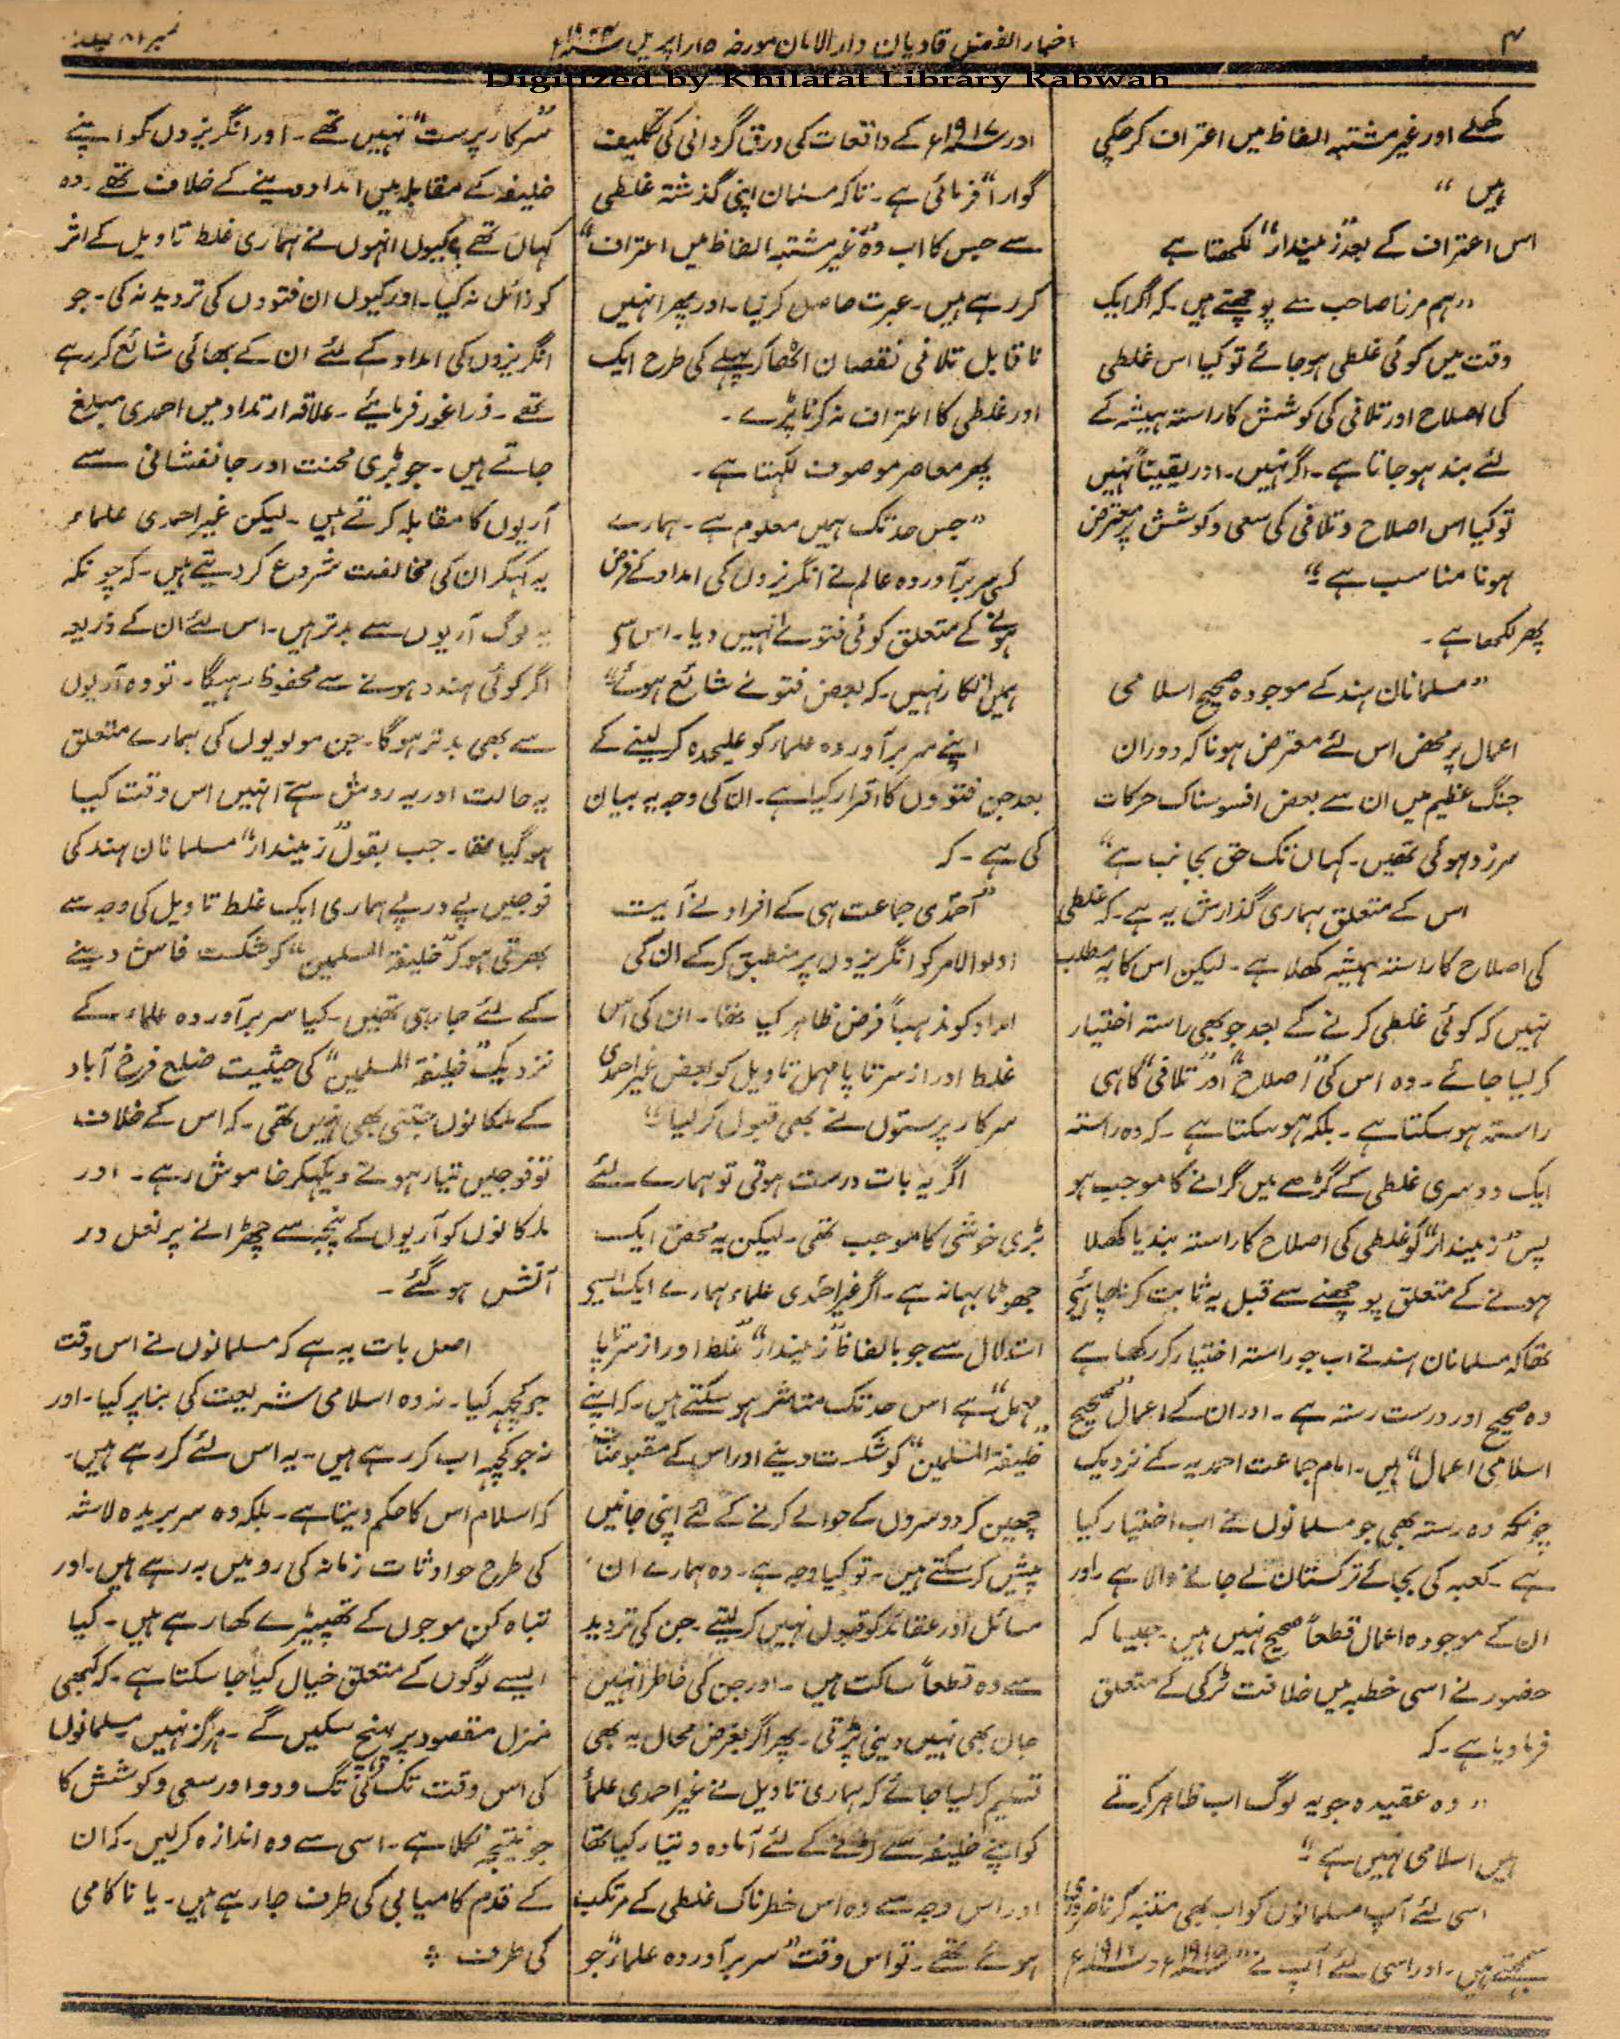 ۴
اخبار الفضل قادیان دارالامان مورخہ ۱۵ر اپریل ۱۹۲۴ء
نمبر ۸۱ جلد
Digitized by Khilafat Library Rabwah
کھلے اور غیر مشتبہ الفاظ میں اعتراف کر چکی
ہیں "
اس اعتراف کے بعد "زمیندار" لکھتا ہے
"ہم مرزا صاحب سے پوچھتے ہیں۔ کہ اگر ایک
وقت میں کوئی غلطی ہو جائے تو کیا اس غلطی
کی اصلاح اور تلافی کی کوشش کا راستہ ہمیشہ کے
لئے بند ہو جاتا ہے۔ اگر نہیں۔ اور یقیناً نہیں
تو کیا اس اصلاح و تلافی کی سعی و کوشش پر معترض
ہونا مناسب ہے ۔"
پھر لکھتا ہے ۔
"مسلمانان ہند کے موجودہ صحیح اسلامی
اعمال پر محض اس لئے معترض ہونا کہ دوران
جنگ عظیم میں ان سے بعض افسوسناک حرکات
سرزد ہوئی تھیں۔ کہاں تک حق بجانب ہے"
اس کے متعلق ہماری گذارش یہ ہے۔ کہ غلطی
کی اصلاح کا راستہ ہمیشہ کھلا ہے۔ لیکن اس کا یہ مطلب
نہیں کہ کوئی غلطی کرنے کے بعد جو بھی راستہ اختیار
کر لیا جائے ۔ وہ اس کی "اصلاح" اور "تلافی" کا ہی
راستہ ہو سکتا ہے ۔ بلکہ ہو سکتا ہے ۔ کہ وہ راستہ
ایک دوسری غلطی کے گڑھے میں گرانے کا موجب ہو
پس "زمیندار" کو غلطی کی اصلاح کا راستہ بند یا کھلا
ہونے کے متعلق پوچھنے سے قبل یہ ثابت کرنا چاہئیے
تھا کہ مسلمانان ہند نے اب جو راستہ اختیار کر رکھا ہے
وہ صحیح اور درست رستہ ہے ۔ اور ان کے اعمال "صحیح
اسلامی اعمال" ہیں۔ امام جماعت احمدیہ کے نزدیک
چونکہ وہ رستہ بھی جو مسلمانوں نے اب اختیار کیا
ہے ۔ کعبہ کی بجائے ترکستان لے جانے والا ہے۔ اور
ان کے موجودہ اعمال قطعاً صحیح نہیں ہیں۔ جیسا کہ
حضور نے اسی خطبہ میں خلافت ٹرکی کے متعلق
فرما دیا ہے ۔ کہ
"وہ عقیدہ جو یہ لوگ اب ظاہر کرتے
ہیں اسلامی نہیں ہے ۔"
اسی لئے آپ مسلمانوں کو اب بھی متنبہ کرنا ضروری
سمجھتے ہیں۔ اور اسی لئے آپ نے "۱۹۱۵ء و ۱۹۱۶ء
اور ۱۹۱۷ء کے واقعات کی ورق گردانی کی تکلیف
گوارا" فرمائی ہے ۔ تاکہ مسلمان اپنی گذشتہ غلطی
سے جس کا اب وہ "غیر مشتبہ الفاظ میں اعتراف"
کر رہے ہیں۔ عبرت حاصل کریں۔ اور پھر انہیں
ناقابل تلافی نقصان اٹھا کر پہلے کی طرح ایک
اور غلطی کا اعتراف نہ کرنا پڑے ۔
پھر معاصر موصوف لکھتا ہے ۔
"جس حد تک ہمیں معلوم ہے ۔ ہمارے
کسی سربرآوردہ عالم نے انگریزوں کی امداد کے فرض
ہونے کے متعلق کوئی فتوےٰ نہیں دیا۔ اس سے
ہمیں انکار نہیں۔ کہ بعض فتوے شائع ہوئے"
اپنے سربرآوردہ علماء کو علیحدہ کر لینے کے
بعد جن فتووں کا اقرار کیا ہے۔ ان کی وجہ یہ بیان
کی ہے ۔ کہ
"احمدی جماعت ہی کے افراد نے آیت
اولو الامر کو انگریزوں پر منطبق کر کے ان کی
امداد کو مذہباً فرض ظاہر کیا تھا۔ ان کی اس
غلط اور از سر تا پا مہمل تاویل کو بعض غیر احمدی
سرکار پرستوں نے بھی قبول کر لیا"
اگر یہ بات درست ہوتی تو ہمارے لئے
بڑی خوشی کا موجب تھی۔ لیکن یہ محض ایک
جھوٹا بہانہ ہے۔ اگر غیر احمدی علماء ہمارے ایک ایسے
استدلال سے جو بالفاظ "زمیندار" "غلط اور از سرتا پا
مہمل" ہے اس حد تک متاثر ہو سکتے ہیں۔ کہ اپنے
"خلیفۃ المسلمین" کو شکست دینے اور اس کے مقبوضات
چھین کر دوسروں کے حوالے کرنے کے لئے اپنی جانیں
پیش کر سکتے ہیں۔ تو کیا وجہ ہے۔ وہ ہمارے ان
مسائل اور عقائد کو قبول نہیں کر لیتے ۔ جن کی تردید
سے وہ قطعاً ساکت ہیں۔ اور جن کی خاطر انہیں
جان بھی نہیں دینی پڑتی۔ پھر اگر بفرض محال یہ بھی
تسلیم کر لیا جائے کہ ہماری تاویل نے غیر احمدی علماء
کو اپنے خلیفہ سے لڑنے کے لئے آمادہ و تیار کیا تھا
اور اس وجہ سے وہ اس خطرناک غلطی کے مرتکب
ہوئے تھے۔ تو اس وقت "سربرآوردہ علماء" جو
"سرکار پرست" نہیں تھے۔ اور انگریزوں کو اپنے
خلیفہ کے مقابلہ میں امداد دینے کے خلاف تھے۔ وہ
کہاں تھے ؟ کیوں انہوں نے ہماری غلط تاویل کے اثر
کو زائل نہ کیا۔ اور کیوں ان فتووں کی تردید نہ کی۔ جو
انگریزوں کی امداد کے لئے ان کے بھائی شائع کر رہے
تھے۔ ذرا غور فرمائیے۔ علاقہ ارتداد میں احمدی مبلغ
جاتے ہیں۔ جو بڑی محنت اور جانفشانی سے
آریوں کا مقابلہ کرتے ہیں۔ لیکن غیر احمدی علماء
یہ کہکر ان کی مخالفت شروع کر دیتے ہیں۔ کہ چونکہ
یہ لوگ آریوں سے بدتر ہیں۔ اس لئے ان کے ذریعہ
اگر کوئی ہندو ہونے سے محفوظ رہیگا۔ تو وہ آریوں
سے بھی بدتر ہوگا۔ جن مولویوں کی ہمارے متعلق
یہ حالت اور یہ روش ہے۔ انہیں اس وقت کیا
ہو گیا تھا۔ جب بقول "زمیندار" مسلمانان ہند کی
فوجیں پے درپے ہماری ایک غلط تاویل کی وجہ سے
بھرتی ہو کر "خلیفۃ المسلمین" کو شکست فاش دینے
کے لئے جا رہی تھیں۔ کیا سربرآوردہ علماء کے
نزدیک "خلیفۃ المسلمین" کی حیثیت ضلع فرخ آباد
کے ملکانوں جتنی بھی نہیں تھی۔ کہ اس کے خلاف
تو فوجیں تیار ہوتے دیکھکر خاموش رہے۔ اور
ملکانوں کو آریوں کے پنجہ سے چھڑانے پر نعل در
آتش ہو گئے ۔
اصل بات یہ ہے کہ مسلمانوں نے اس وقت
جو کچھ کیا۔ نہ وہ اسلامی شریعت کی بنا پر کیا۔ اور
نہ جو کچھ اب کر رہے ہیں۔ یہ اس لئے کر رہے ہیں۔
کہ اسلام اس کا حکم دیتا ہے۔ بلکہ وہ سر بریدہ لاشہ
کی طرح حوادثات زمانہ کی رو میں بہ رہے ہیں۔ اور
تباہ کن موجوں کے تھپیڑے کھا رہے ہیں۔ کیا
ایسے لوگوں کے متعلق خیال کیا جا سکتا ہے۔ کہ کبھی
منزل مقصود پر پہنچ سکیں گے ۔ ہرگز نہیں۔ مسلمانوں
کی اس وقت تک کی تگ و دو اور سعی و کوشش کا
جو نتیجہ نکلا ہے۔ اسی سے وہ اندازہ کر لیں۔ کہ ان
کے قدم کامیابی کی طرف جا رہے ہیں۔ یا ناکامی
کی طرف ۔